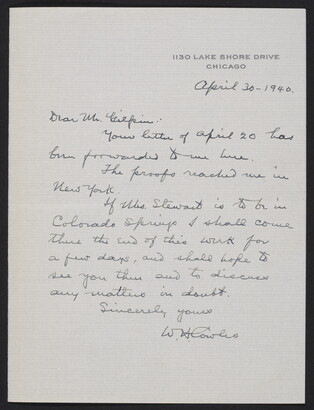 1130 LAKE SHORE DRIVE
CHICAGO
April 30-1940.
Dear Mr. Gilpin:
Your letter of April 20 has
been forwarded to me here.
The proofs reached me in
New York.
If Mrs. Stewart is to be in
Colorado Springs I shall come
there the end of this week for
a few days, and shall hope to
see you then and to discuss
any matters in doubt.
Sincerely yours
W. H. Cowles